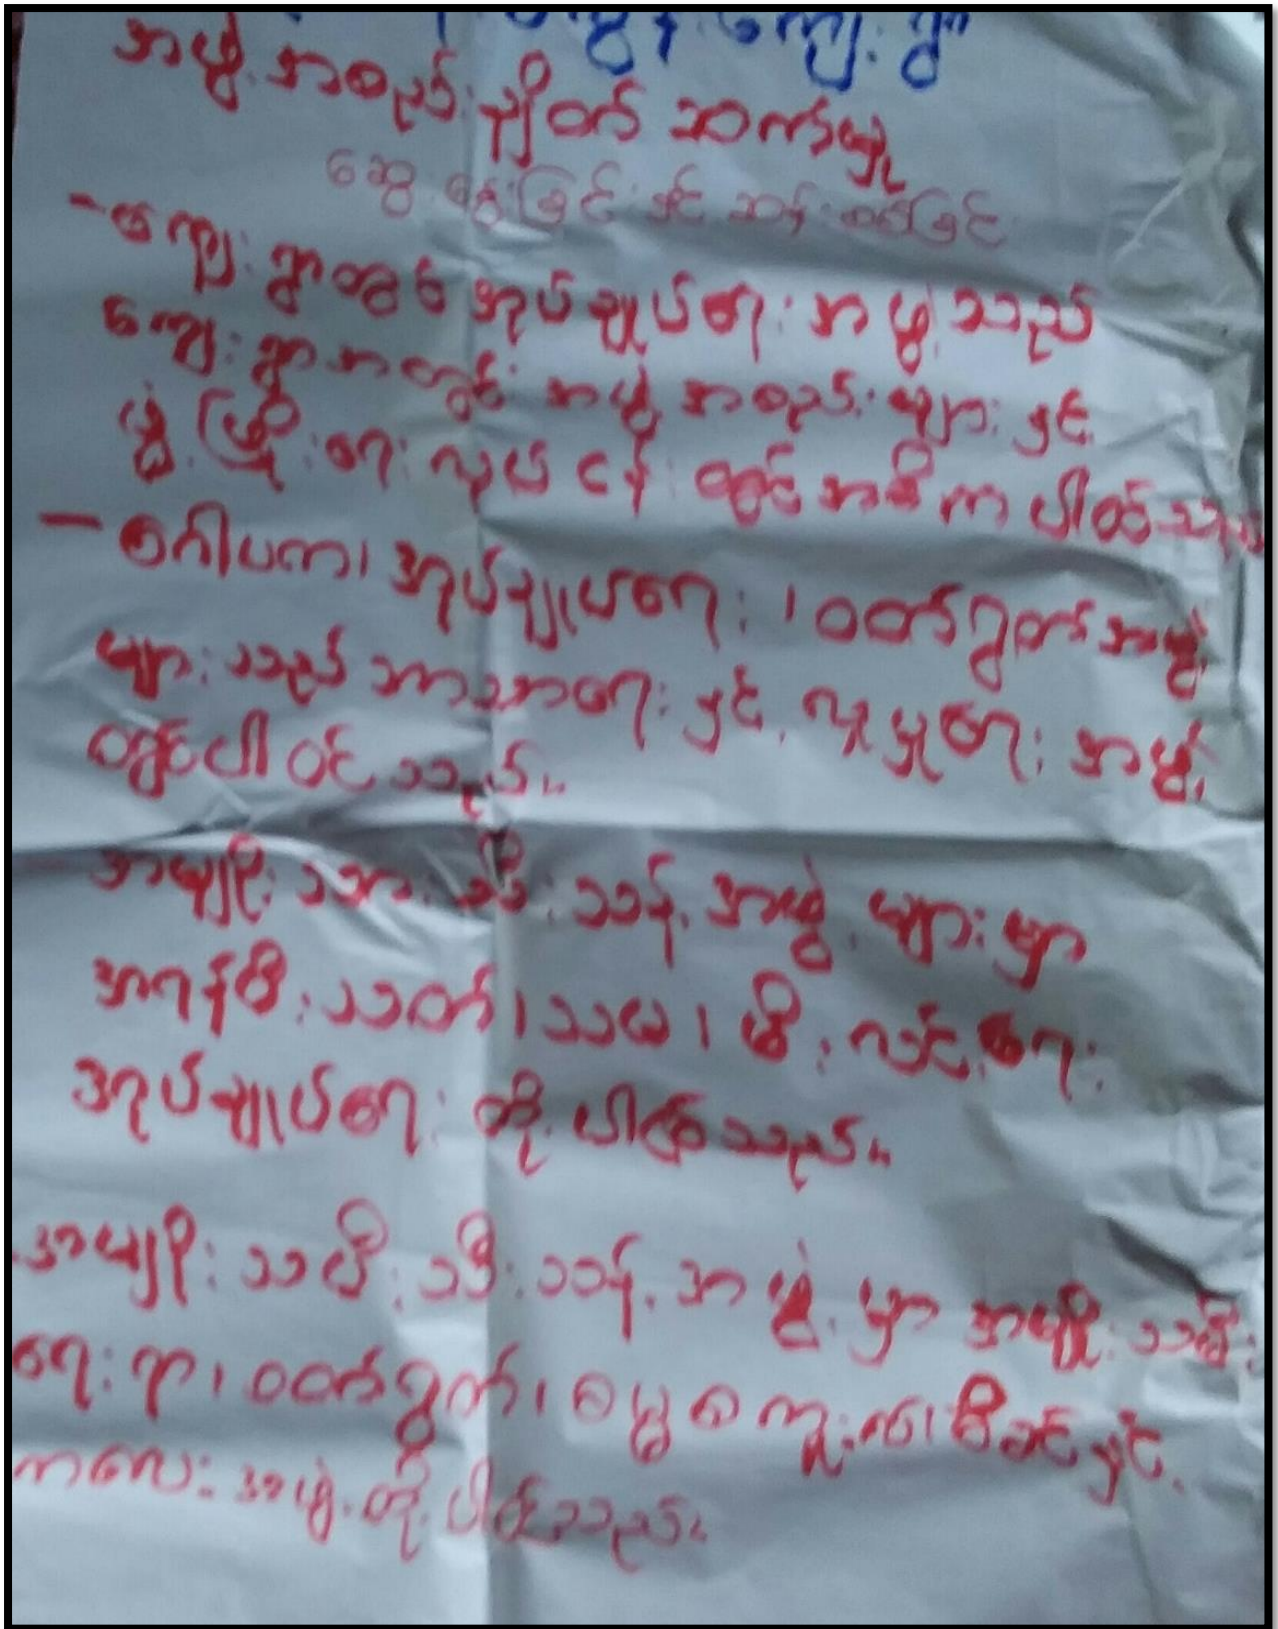 ကျေးရွာ
အဖွဲ့အစည်းချိတ်ဆက်မှု
ဆွေးနွေးခြင်းနှင့် ဆန်းစစ်ခြင်း
- ကျေးရွာတွင် အုပ်ချုပ်ရေးအဖွဲ့သည်
ကျေးရွာအတွင်း အဖွဲ့အစည်းများနှင့်
ဖွံ့ဖြိုးရေးလုပ်ငန်းတွင် အဓိကပါဝင်သည်
- ဂေါပက၊ အုပ်ချုပ်ရေး၊ ဝတ်ရွတ်အဖွဲ့
များသည် ဘာသာရေးနှင့် လူမှုရေးအဖွဲ့
တွင်ပါဝင်သည်။
အမျိုးသားသီးသန့်အဖွဲ့များမှာ
အရန်မီးသတ်၊ သမ၊ မီးလင်းရေး
အုပ်ချုပ်ရေးတို့ပါဝင်သည်။
အမျိုးသမီးသီးသန့်အဖွဲ့မှာ အမျိုးသမီး
ရေးရာ၊ ဝတ်ရွတ်၊ မိခင်နှင့်
ကလေးအဖွဲ့တို့ပါဝင်သည်။